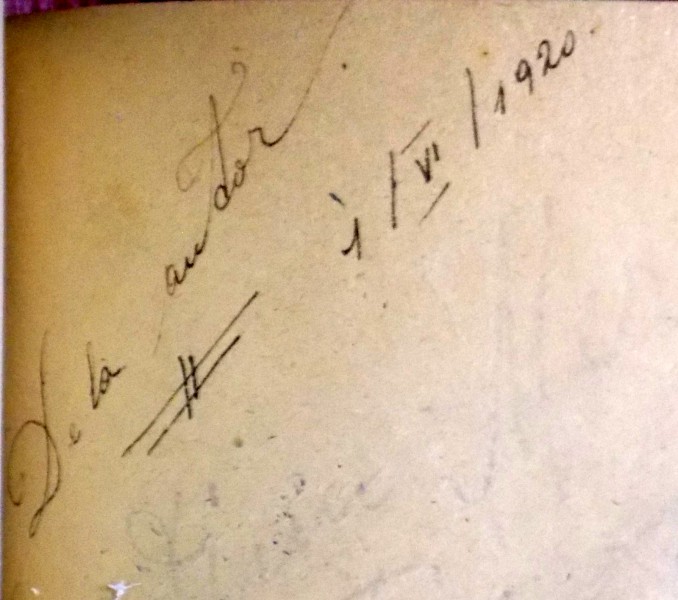 De la autor.
1/VI/1920.